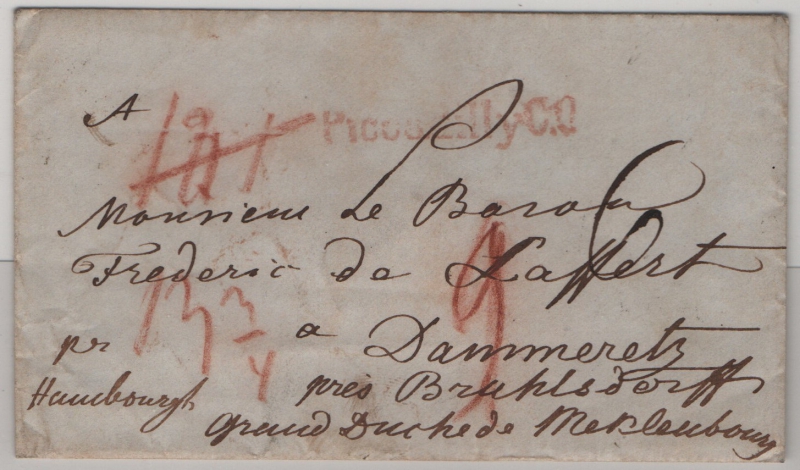 A
Piccadilly C.O
Monsieur Le Baron
Frederic de Laffert
13 3/4
9
6
a Dammeretz
pr
Hambourgh
près Bruhlsdorff
Grand Duche de Meklenbourg